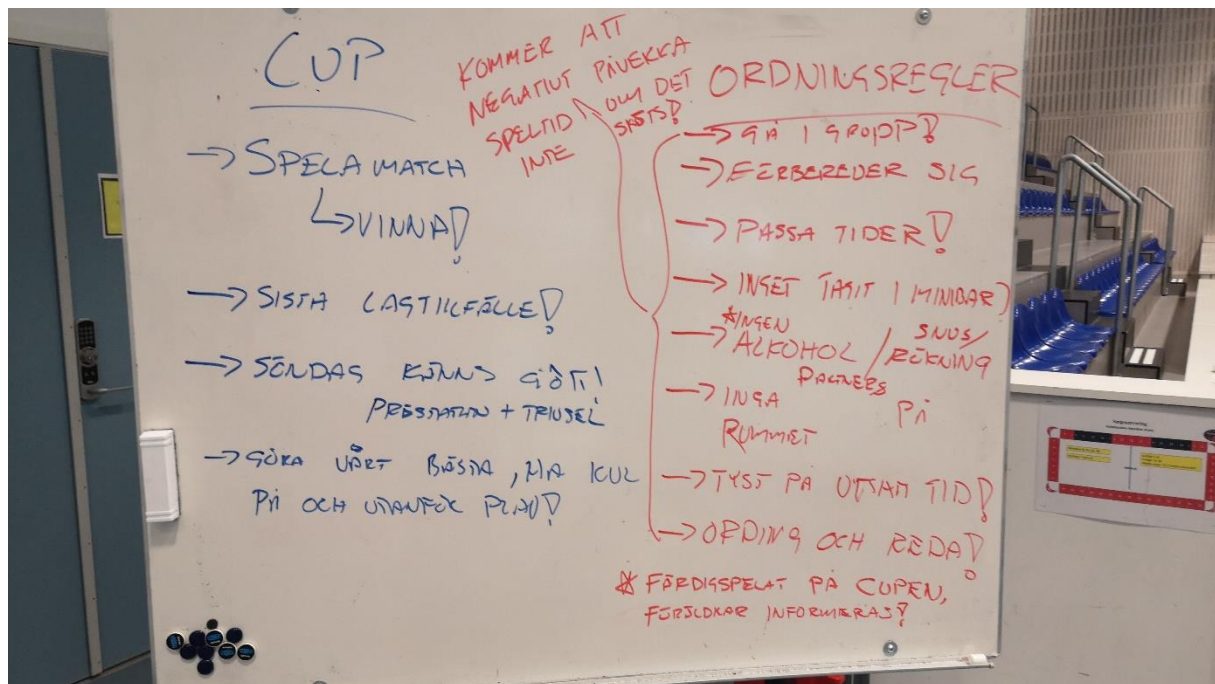 CUP
→ SPELA MATCH
↳ VINNA!
→ SISTA LAGTILLFÄLLE!
→ SÖNDAG KÄNNS GÖTT!
PRESTATION + TRIVSEL
→ GÖRA VÅRT BÄSTA, HA KUL
PÅ OCH UTANFÖR PLAN!
KOMMER ATT
NEGATIVT PÅVERKA
SPELTID OM DET
INTE SKÖTS!
ORDNINGSREGLER
→ GÅ I GRUPP!
→ FÖRBEREDER SIG
→ PASSA TIDER!
→ INGET TAGIT I MINIBAR
→ *INGEN ALKOHOL / SNUS/
RÖKNING
→ INGA PARTNERS PÅ
RUMMET
→ TYST PÅ UTSATT TID!
→ ORDING OCH REDA!
* FÄRDIGSPELAT PÅ CUPEN,
FÖRÄLDRAR INFORMERAS!